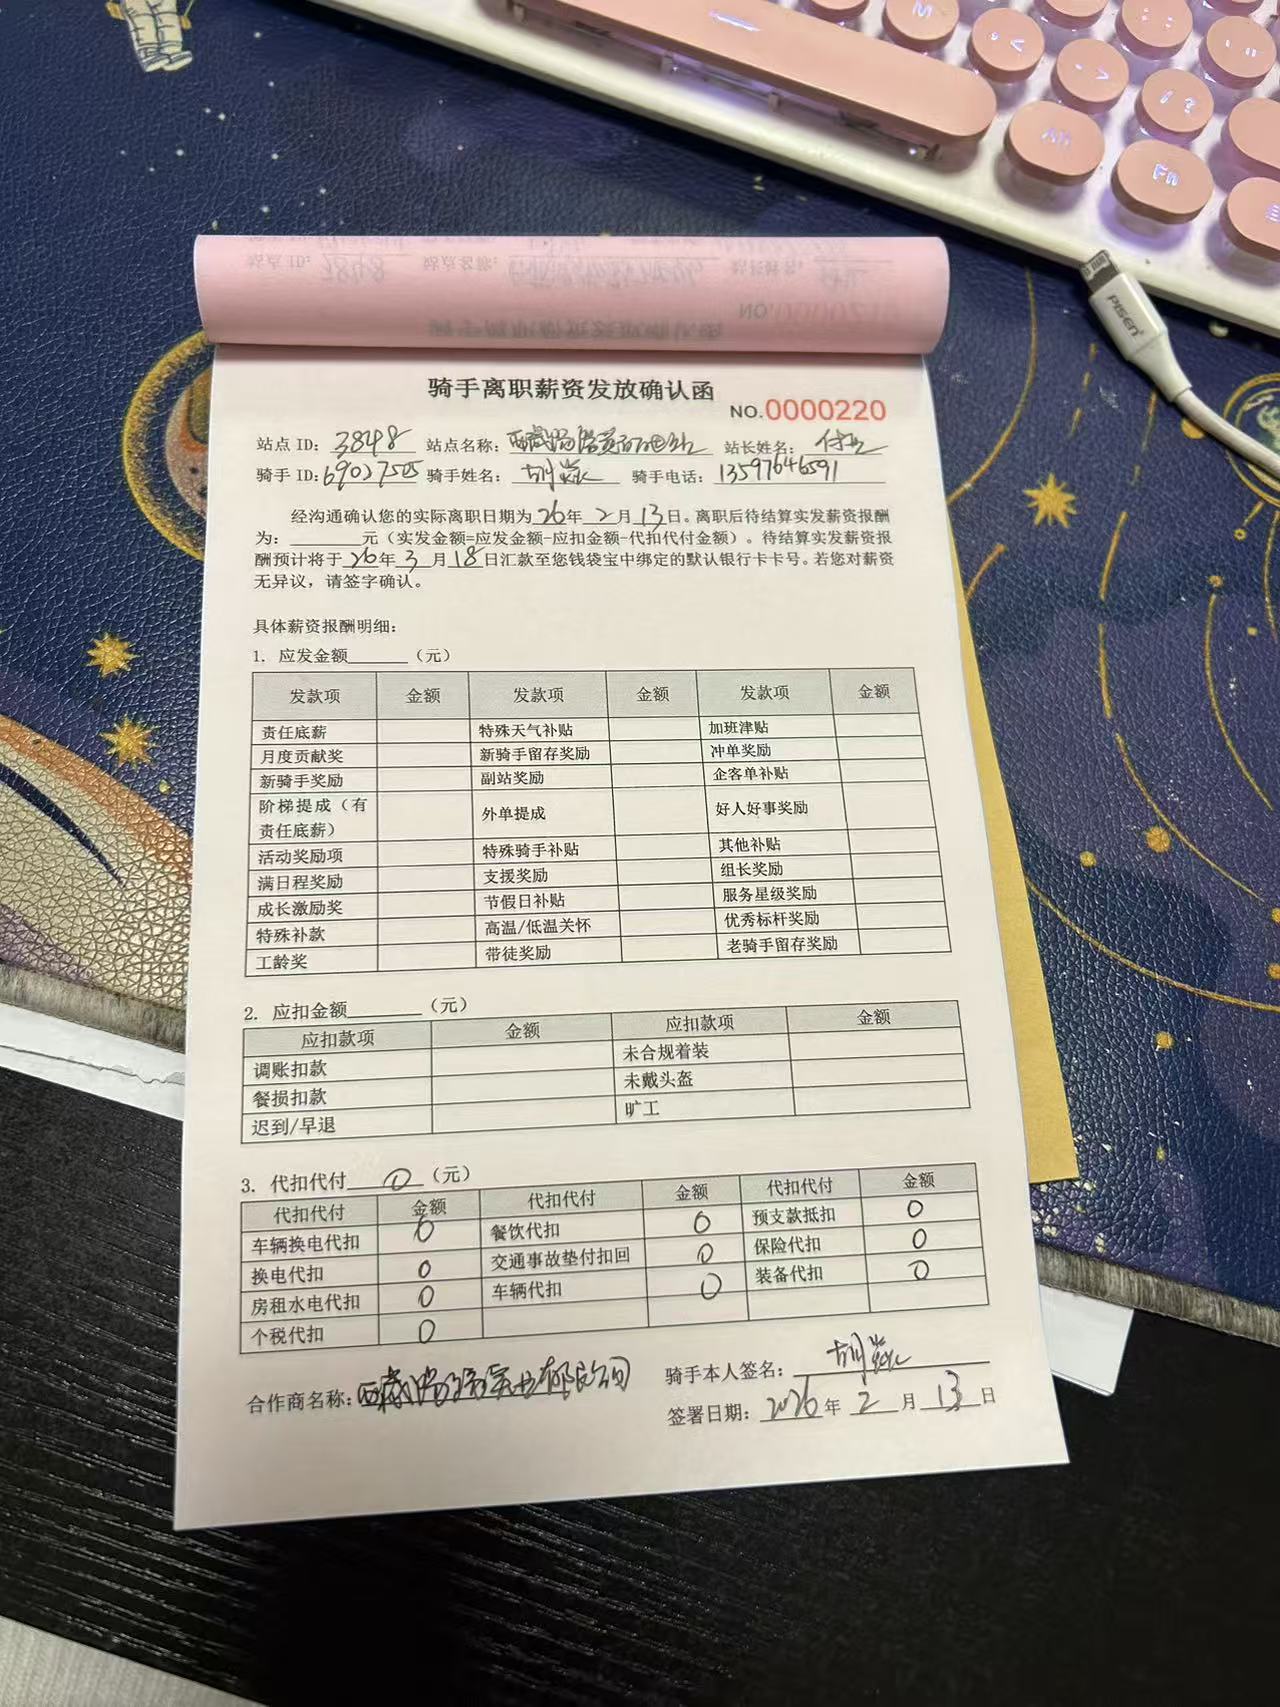 骑手离职薪资发放确认函
NO.0000220
站点 ID: 3848 站点名称: 站长姓名:
骑手 ID:69027505 骑手姓名: 胡 骑手电话: 13597646591
经沟通确认您的实际离职日期为26年2月13日。离职后待结算实发薪资报酬
为:______元（实发金额=应发金额-应扣金额-代扣代付金额）。待结算实发薪资报
酬预计将于26年3月18日汇款至您钱袋宝中绑定的默认银行卡卡号。若您对薪资
无异议，请签字确认。
具体薪资报酬明细:
1. 应发金额______（元）
发款项 金额 发款项 金额 发款项 金额
责任底薪 特殊天气补贴 加班津贴
月度贡献奖 新骑手留存奖励 冲单奖励
新骑手奖励 副站奖励 企客单补贴
阶梯提成（有责任底薪） 外单提成 好人好事奖励
活动奖励项 特殊骑手补贴 其他补贴
满日程奖励 支援奖励 组长奖励
成长激励奖 节假日补贴 服务星级奖励
特殊补款 高温/低温关怀 优秀标杆奖励
工龄奖 带徒奖励 老骑手留存奖励
2. 应扣金额______（元）
应扣款项 金额 应扣款项 金额
调账扣款 未合规着装
餐损扣款 未戴头盔
迟到/早退 旷工
3. 代扣代付 0 （元）
代扣代付 金额 代扣代付 金额 代扣代付 金额
车辆换电代扣 0 餐饮代扣 0 预支款抵扣 0
换电代扣 0 交通事故垫付扣回 0 保险代扣 0
房租水电代扣 0 车辆代扣 0 装备代扣 0
个税代扣 0
合作商名称: 西藏 公司
骑手本人签名: 胡
签署日期: 2026年 2 月 13 日
PISEN
M
Alt
Fn